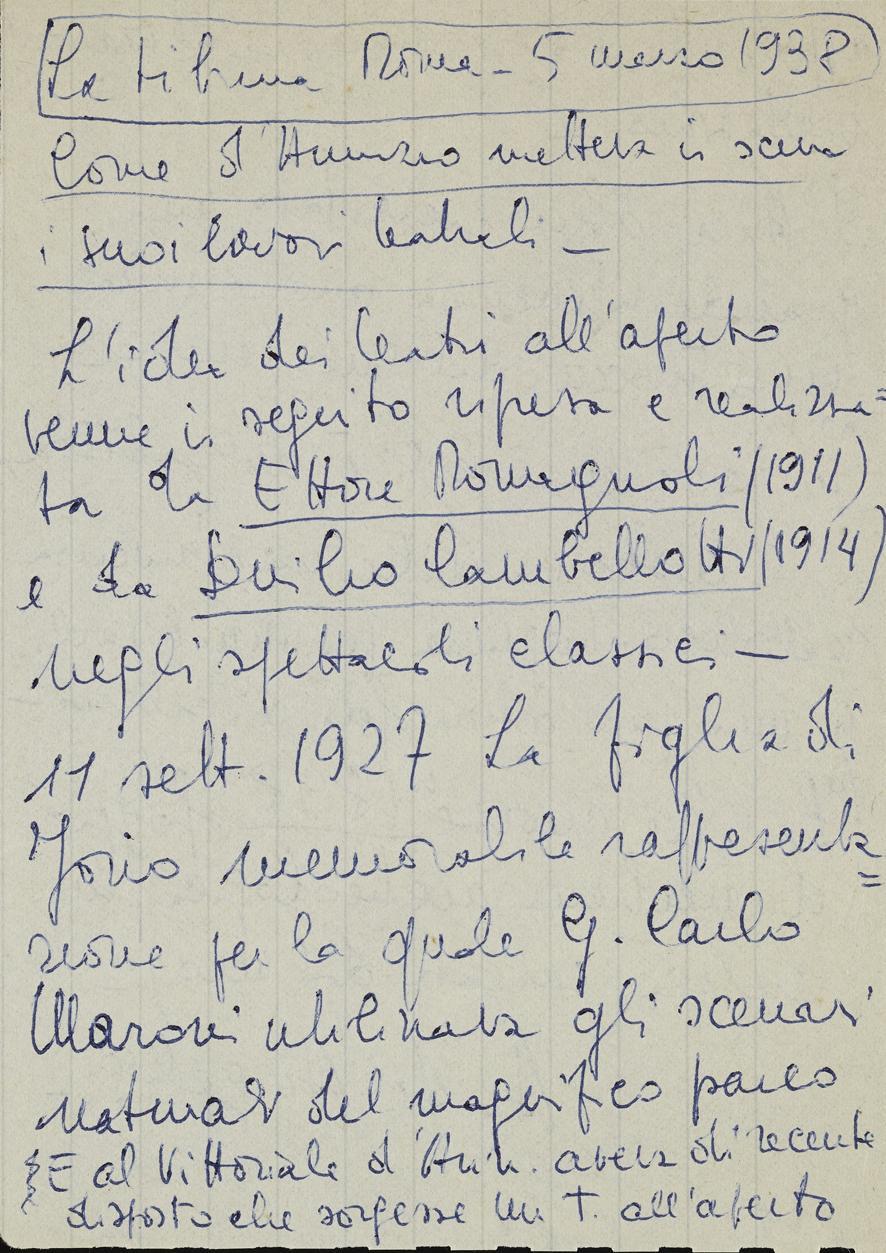 La tribuna Roma - 5 marzo 1938
Come d'Annunzio metteva in scena
i suoi lavori teatrali -
L'idea dei teatri all'aperto
venne in seguito ripresa e realizza=
ta da Ettore Romagnoli (1911)
e da Duilio Cambellotti (1914)
negli spettacoli classici -
11 sett. 1927 La figlia di
Jorio memorabile rappresenta=
zione per la quale G. Carlo
Maroni utilizzava gli scenari
naturali del magnifico parco
E al Vittoriale d'Ann. aveva di recente
disposto che sorgesse un T. all'aperto